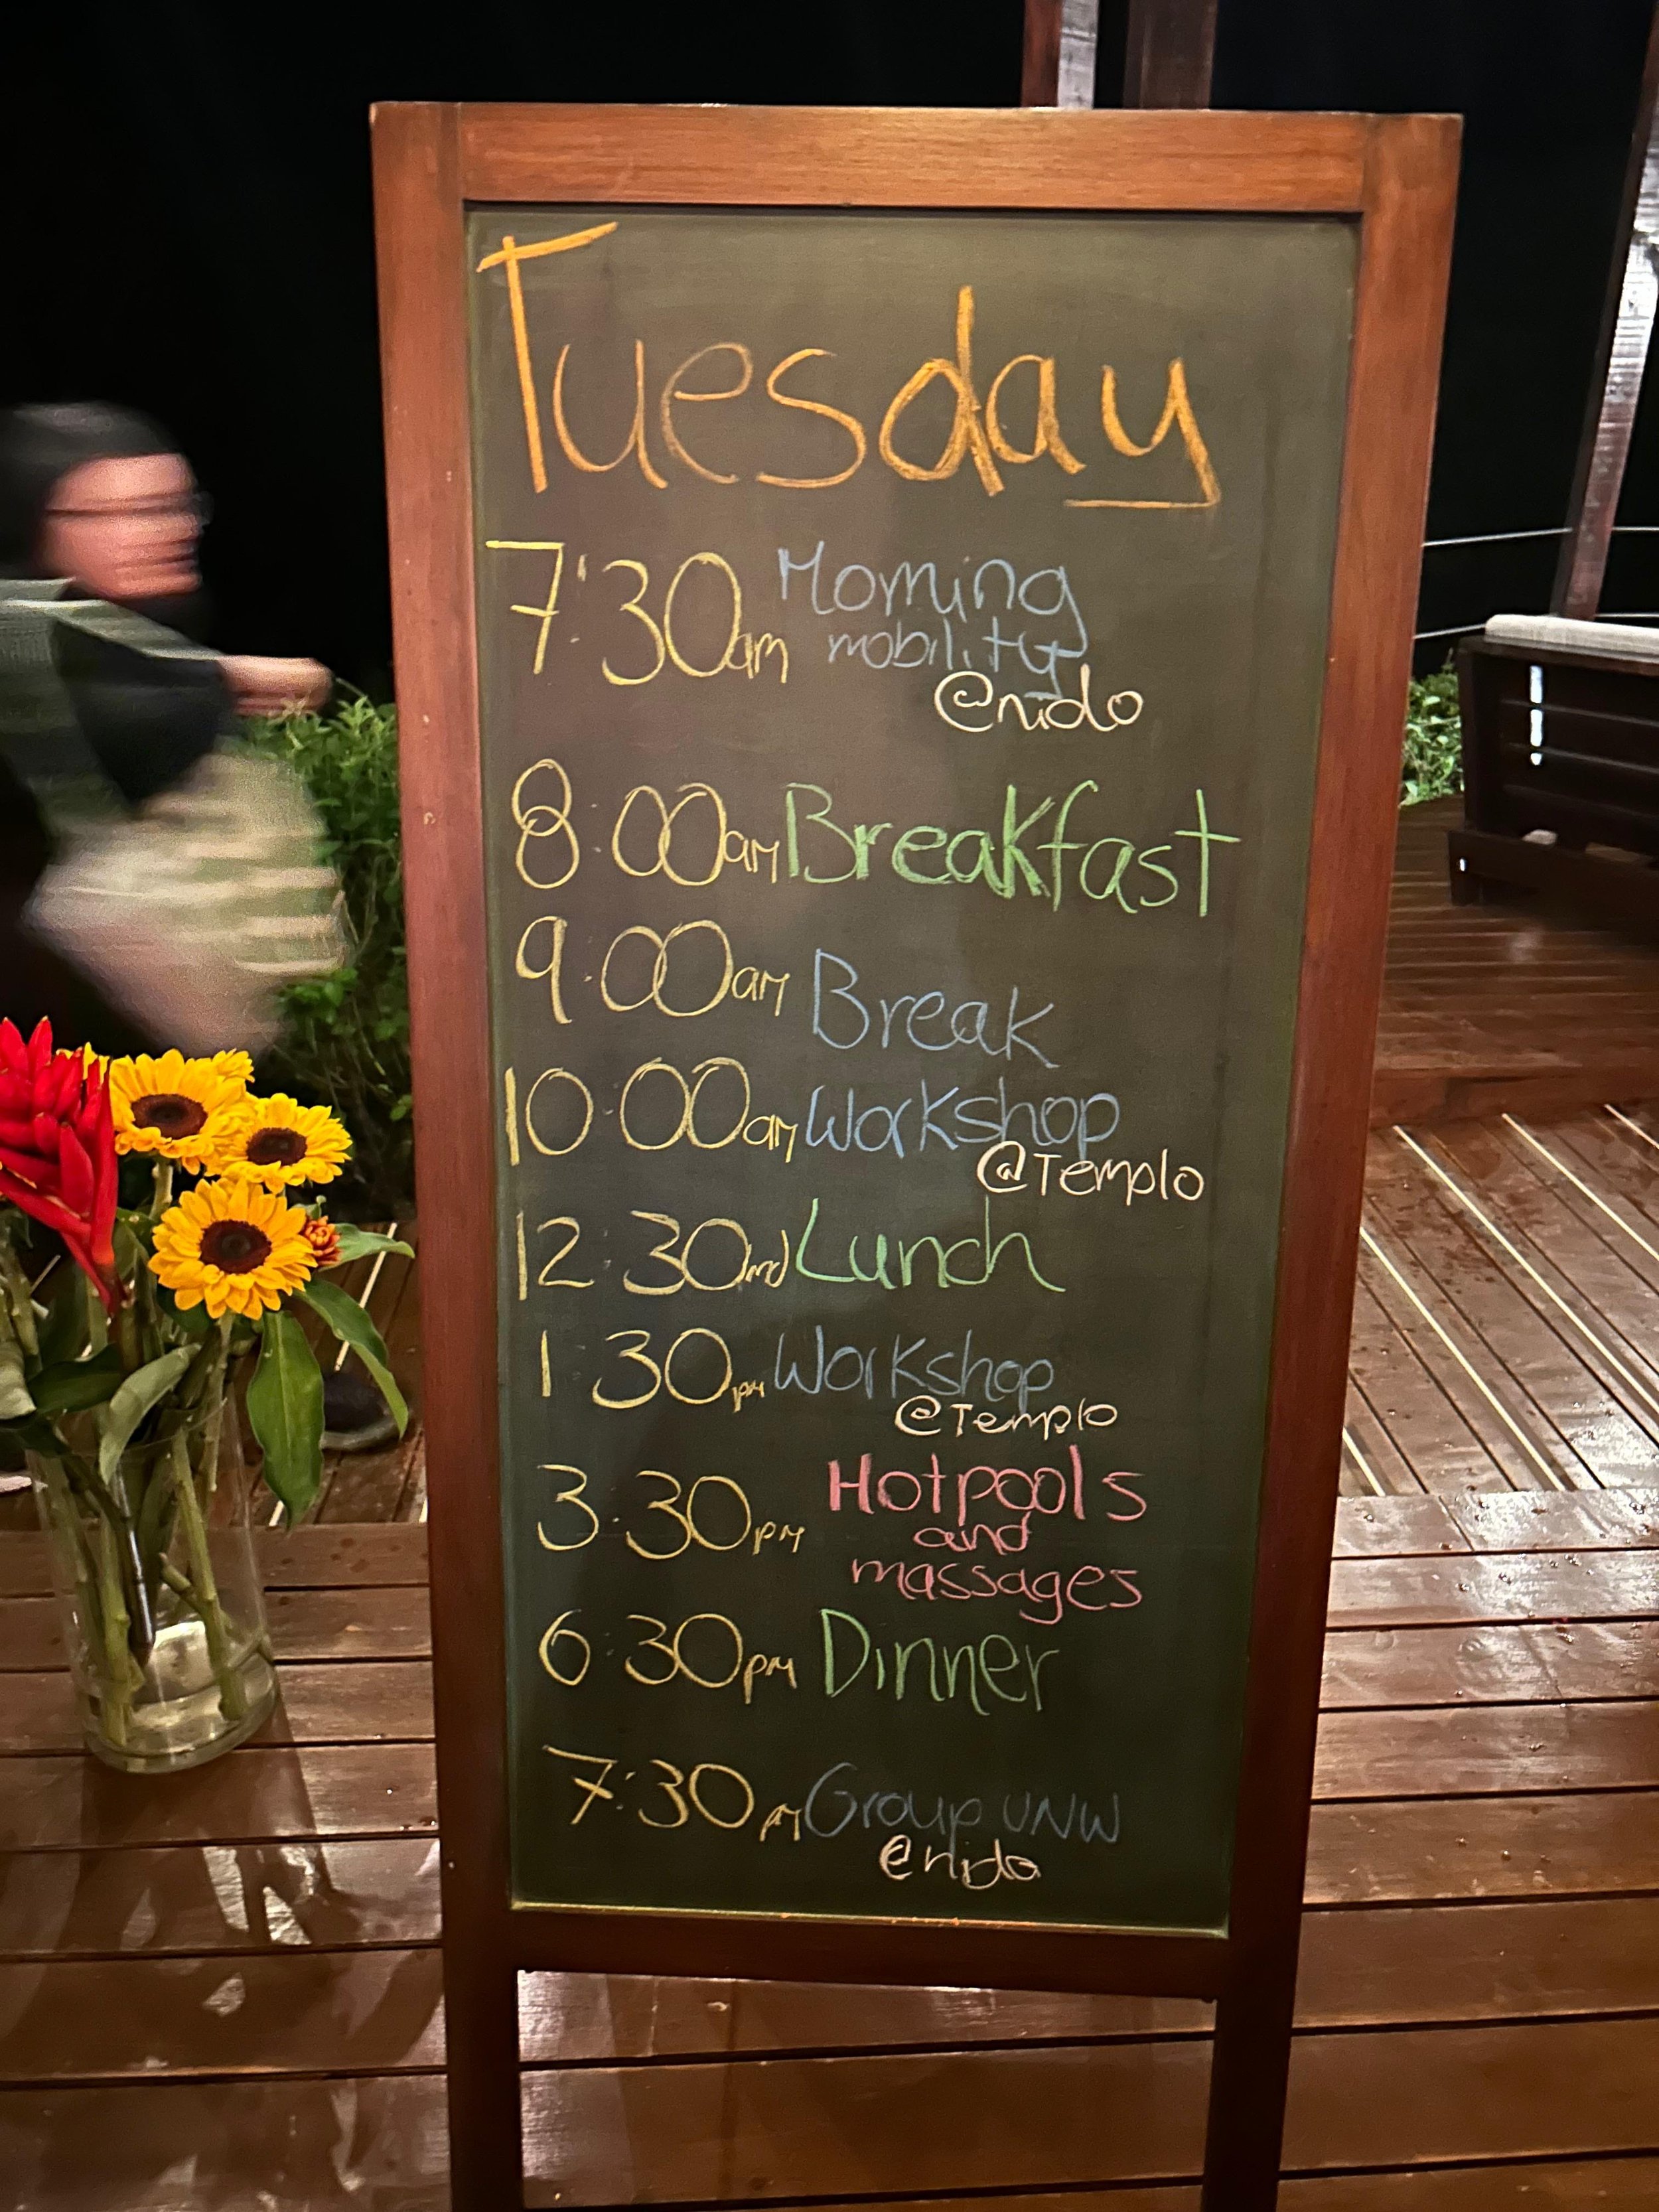 Tuesday
7:30am Morning
mobility
@nido
8:00am Breakfast
9:00am Break
10:00am Workshop
@Templo
12:30md Lunch
1:30pm Workshop
@Templo
3:30pm Hotpools
and
massages
6:30pm Dinner
7:30pm Group UNW
@nido